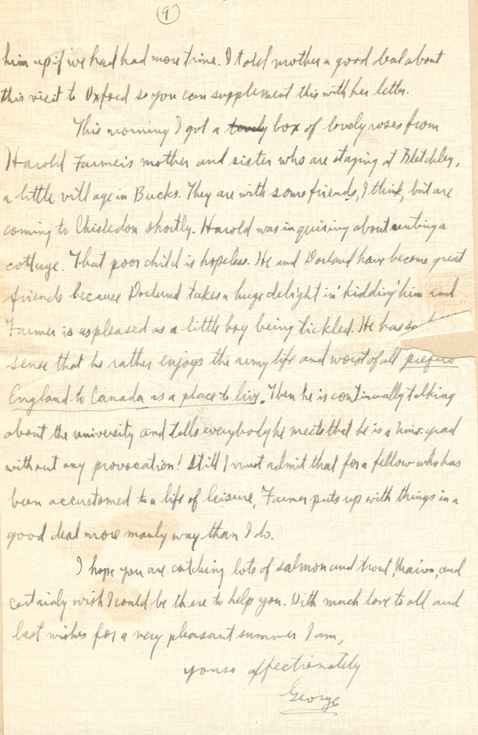 (9)
him up if we had had more time. I told mother a good deal about
this visit to Oxford so you can supplement this with her letter.
This morning I got a box of lovely roses from
Harold Farmer's mother and sister who are staying at Bletchley,
a little village in Bucks. They are with some friends, I think, but are
coming to Chiseldon shortly. Harold was inquiring about renting a
cottage. That poor child is hopeless. He and Dorland have become great
friends because Dorland takes a huge delight in 'kidding' him and
Farmer is as pleased as a little boy being tickled. He has so
sense that he rather enjoys the army life and worst of all prefers
England to Canada as a place to live. Then he is continually talking
about the university and tells everybody he meets that he is a univ. grad
without any provocation! Still I must admit that for a fellow who has
been accustomed to a life of leisure, Farmer puts up with things in a
good deal more manly way than I do.
I hope you are catching lots of salmon and trout, and
certainly wish I could be there to help you. With much love to all and
best wishes for a very pleasant summer I am,
yours affectionately
George